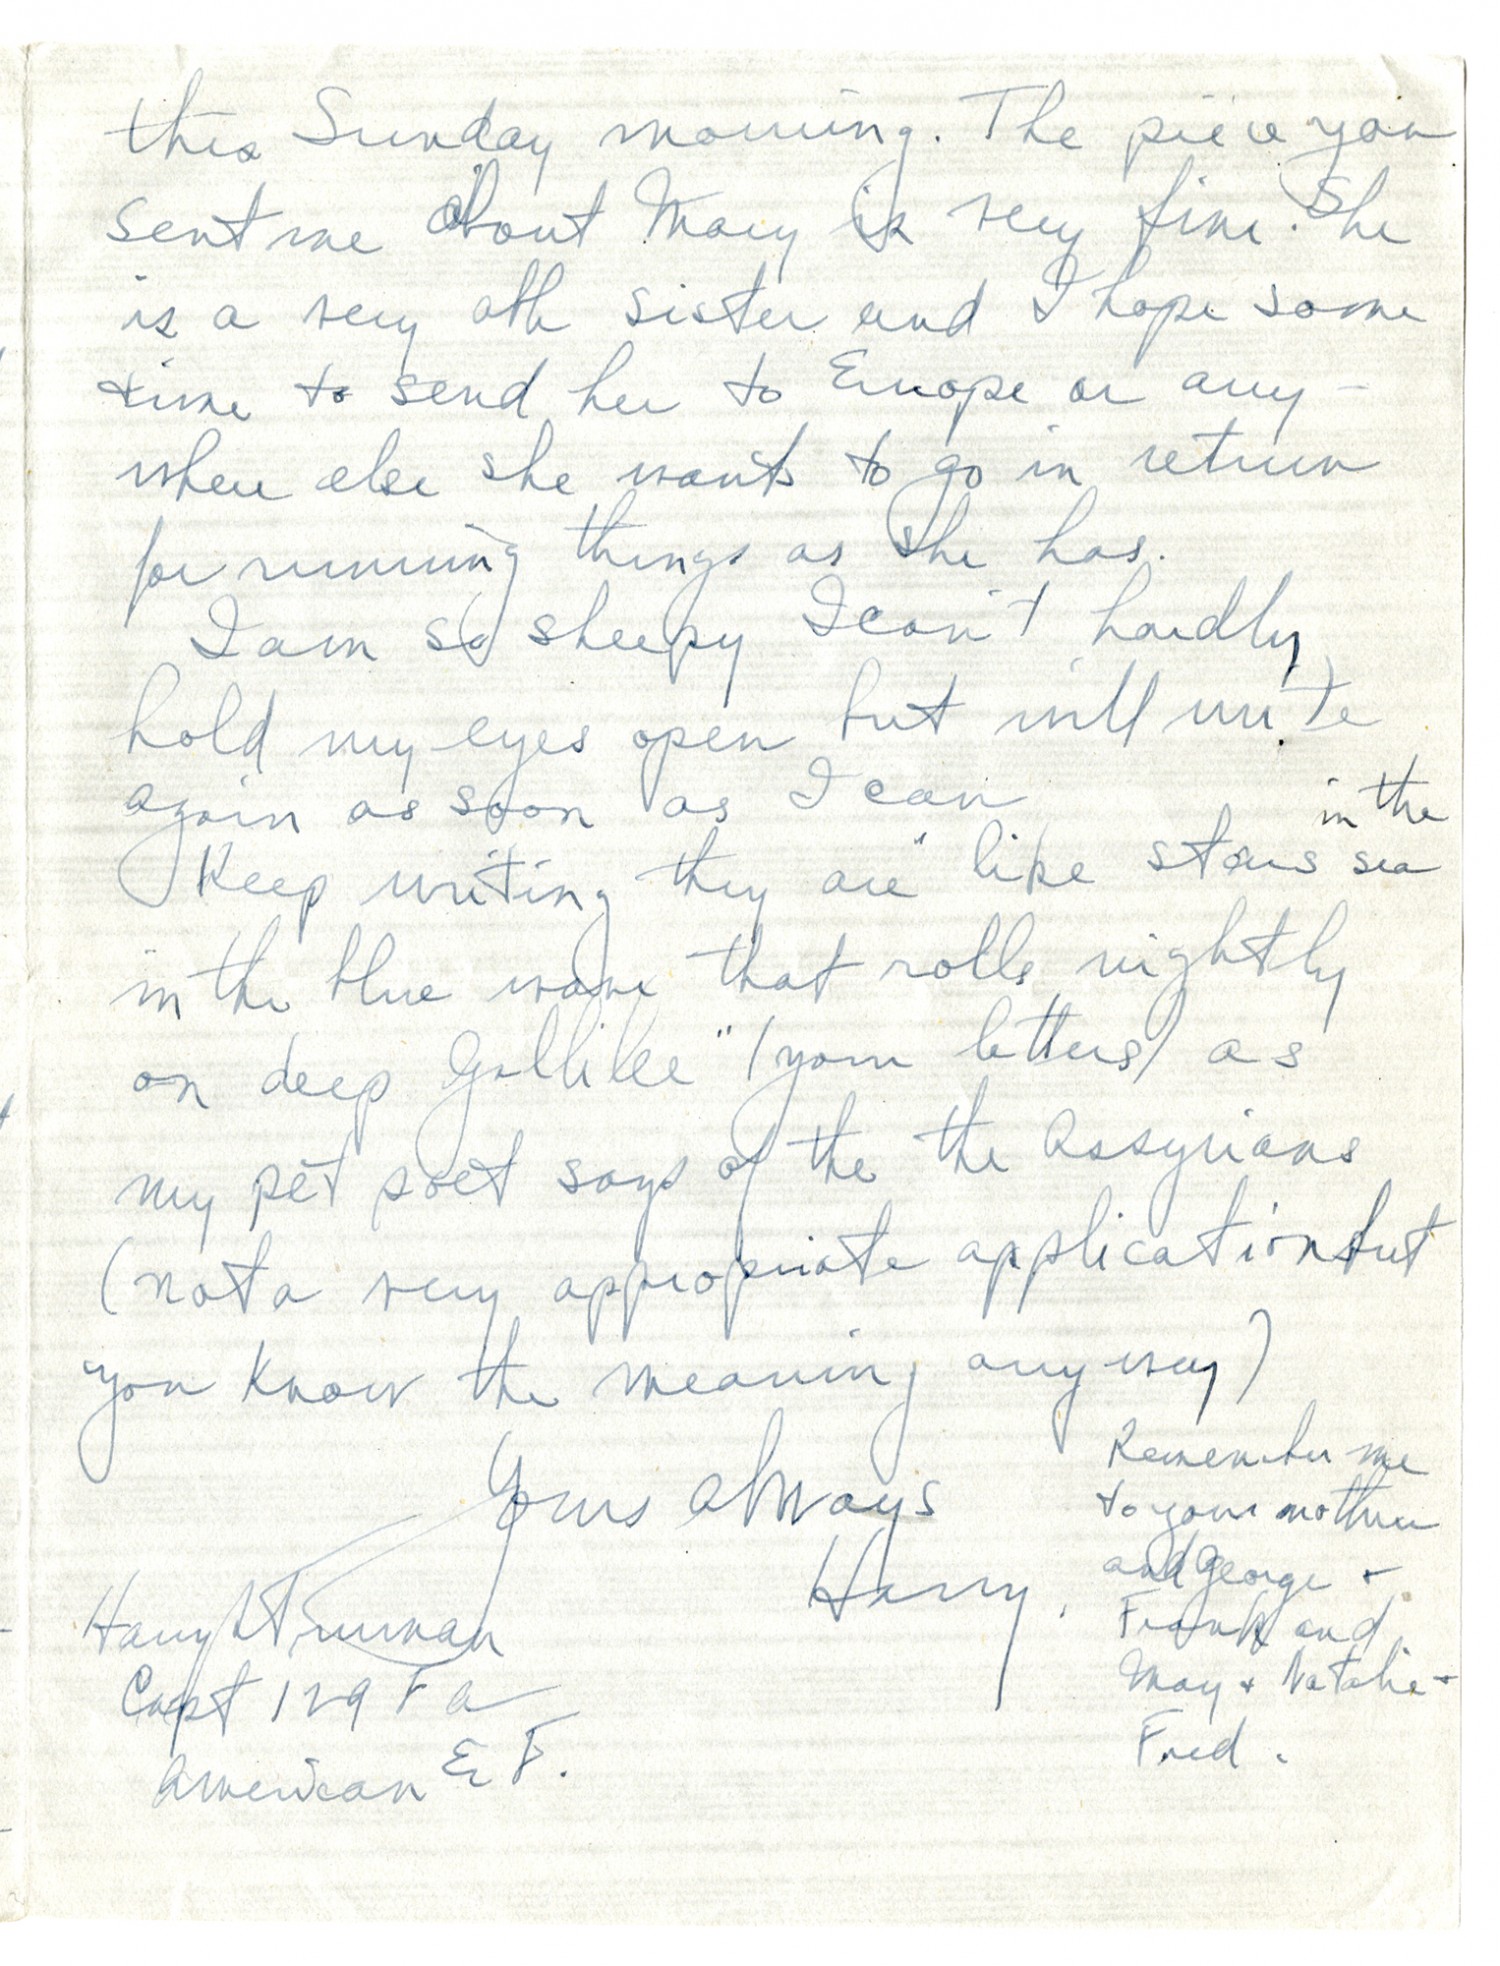 this Sunday morning. The piece you
sent me about Mary is very fine. She
is a very able sister and I hope some
time to send her to Europe or any-
where else she wants to go in return
for running things as she has.
I am so sleepy I can't hardly
hold my eyes open but will write
again as soon as I can
in the
Keep writing they are "like stars sea
in the blue wave that rolls nightly
on deep Gallilee" (your letters) as
my pet poet says of the the Assyrians
(not a very appropriate application but
you know the meaning anyway)
Yours always
Harry.
Remember me
to your mother
and George +
Frank and
May + Natalie +
Fred.
Harry S Truman
Capt 129 F A
American E F.